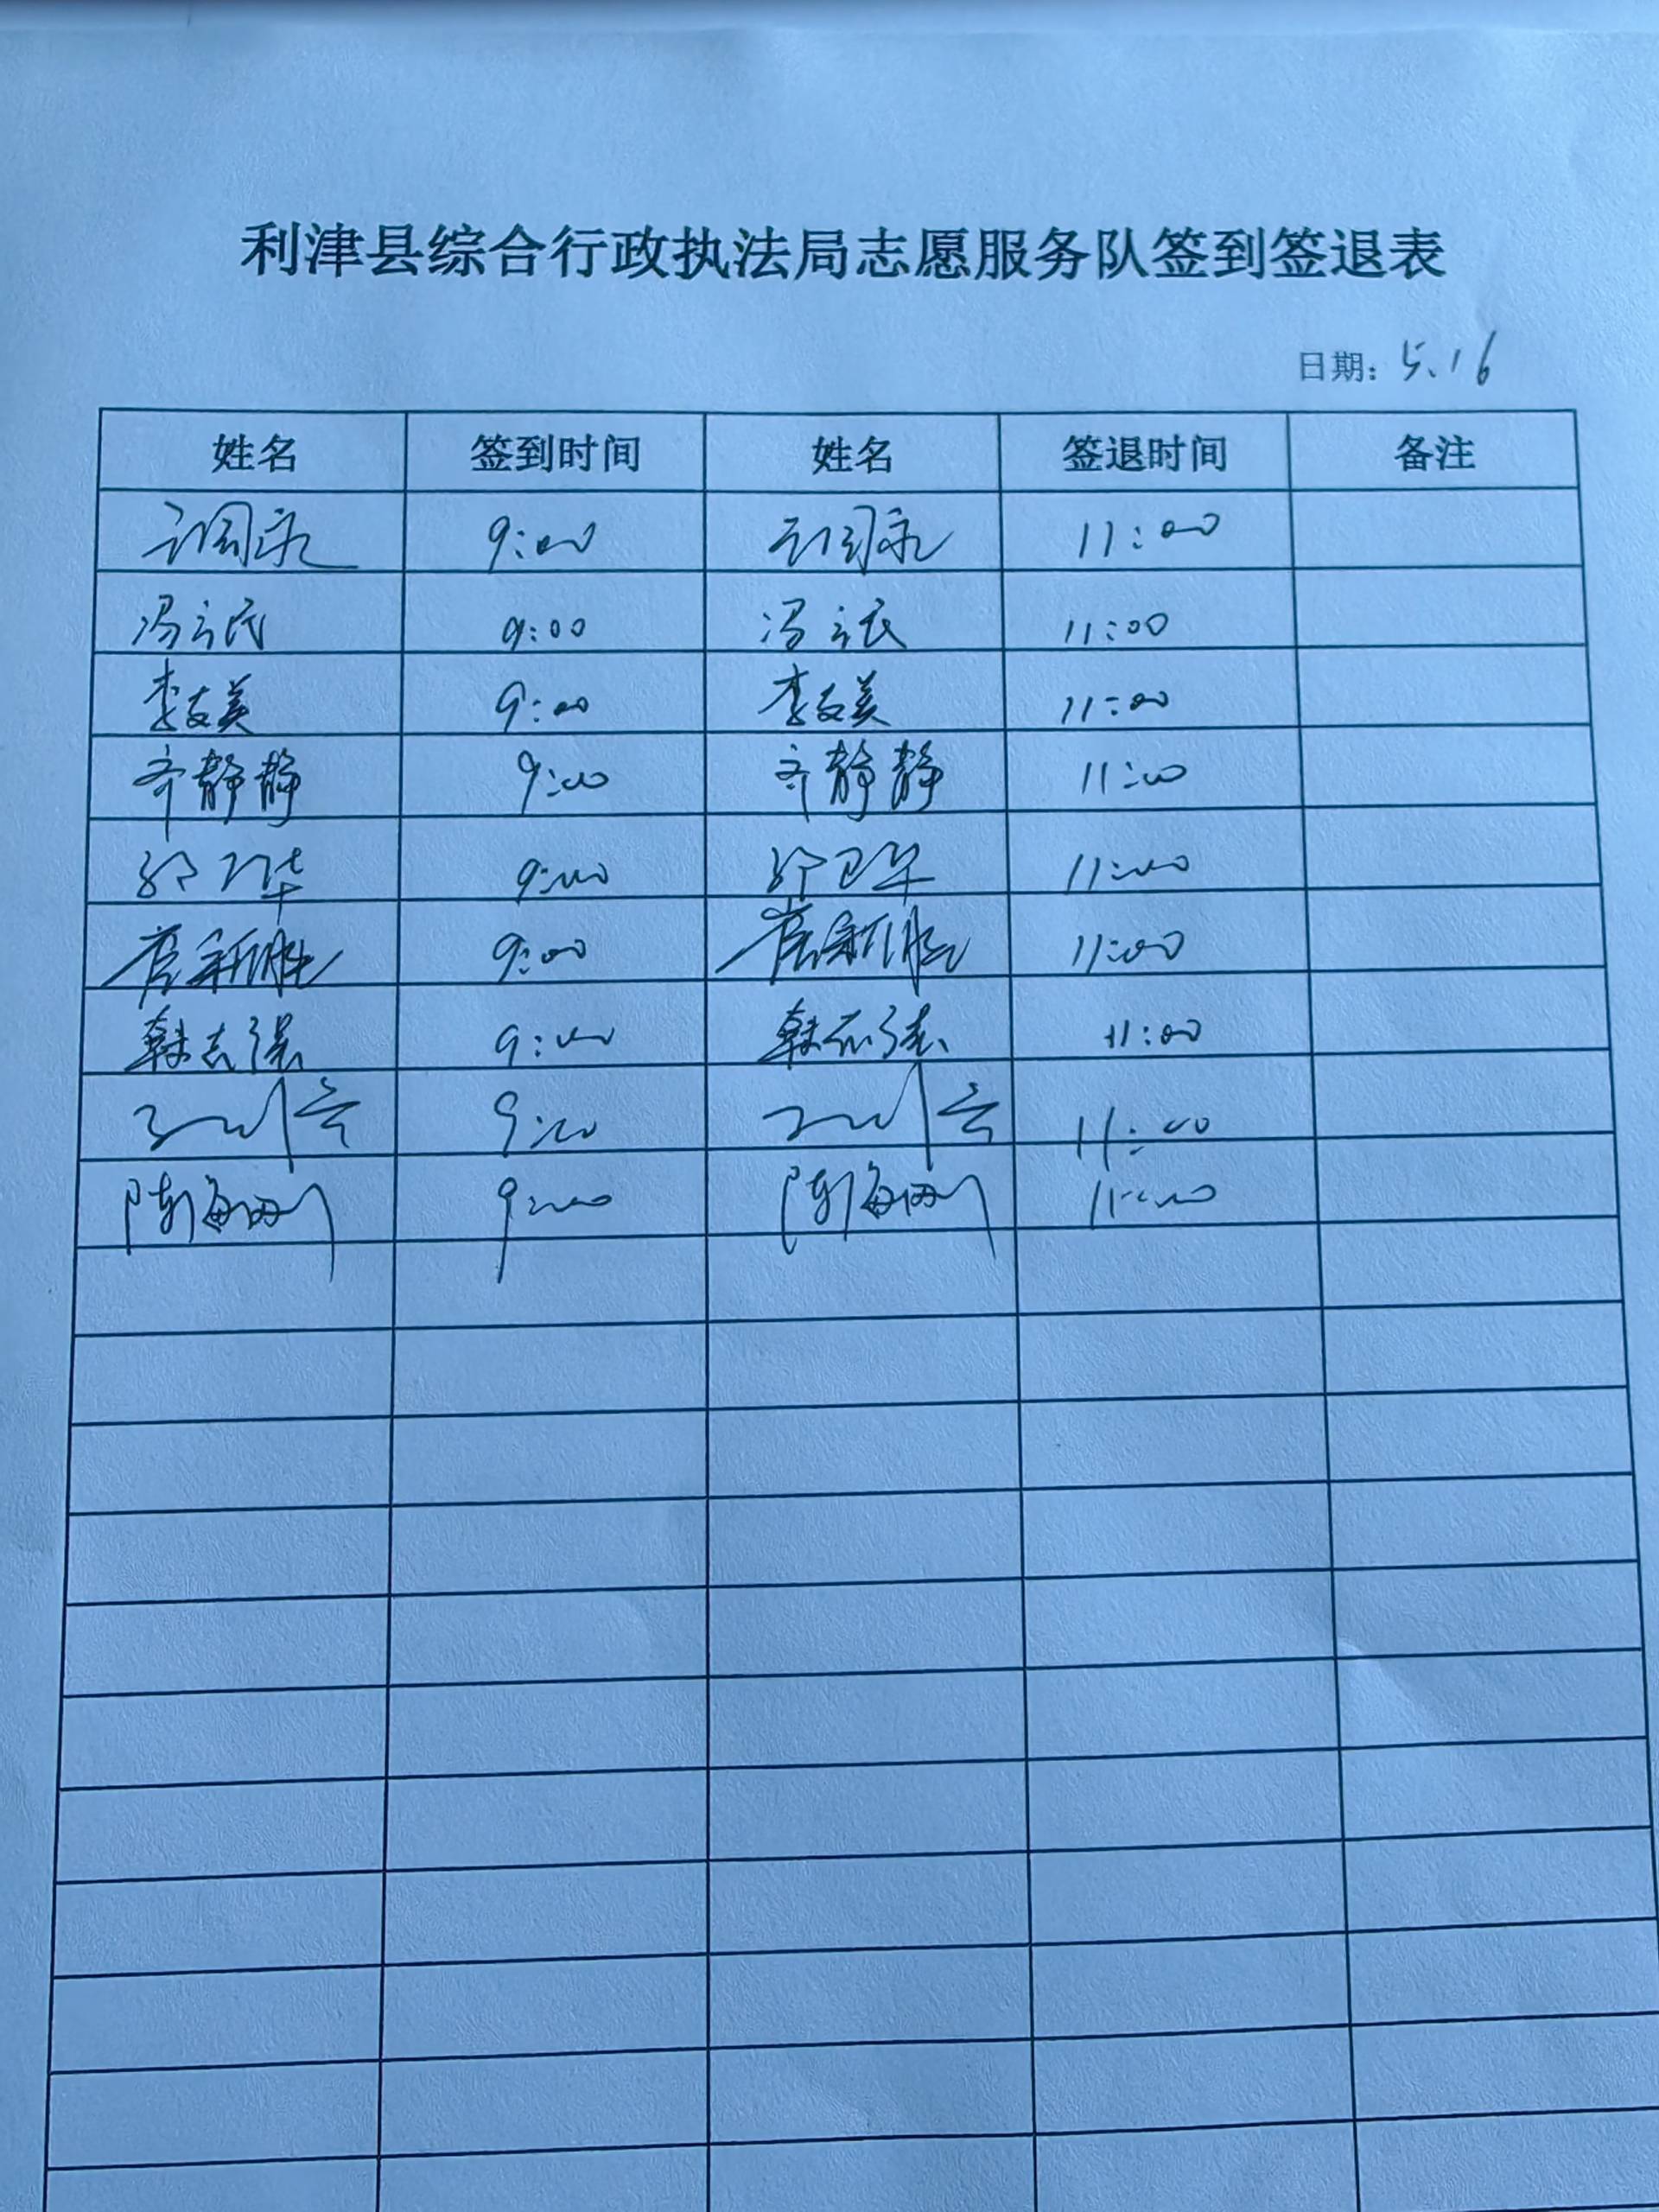 利津县综合行政执法局志愿服务队签到签退表
日期：5.16
姓名 签到时间 姓名 签退时间 备注
9:00 11:00
冯立民 9:00 冯立民 11:00
李友美 9:00 李友美 11:00
齐静静 9:00 齐静静 11:00
卫华 9:00 卫华 11:00
崔新胜 9:00 崔新胜 11:00
韩志强 9:00 韩志强 11:00
9:00 11:00
陈海刚 9:00 陈海刚 11:00